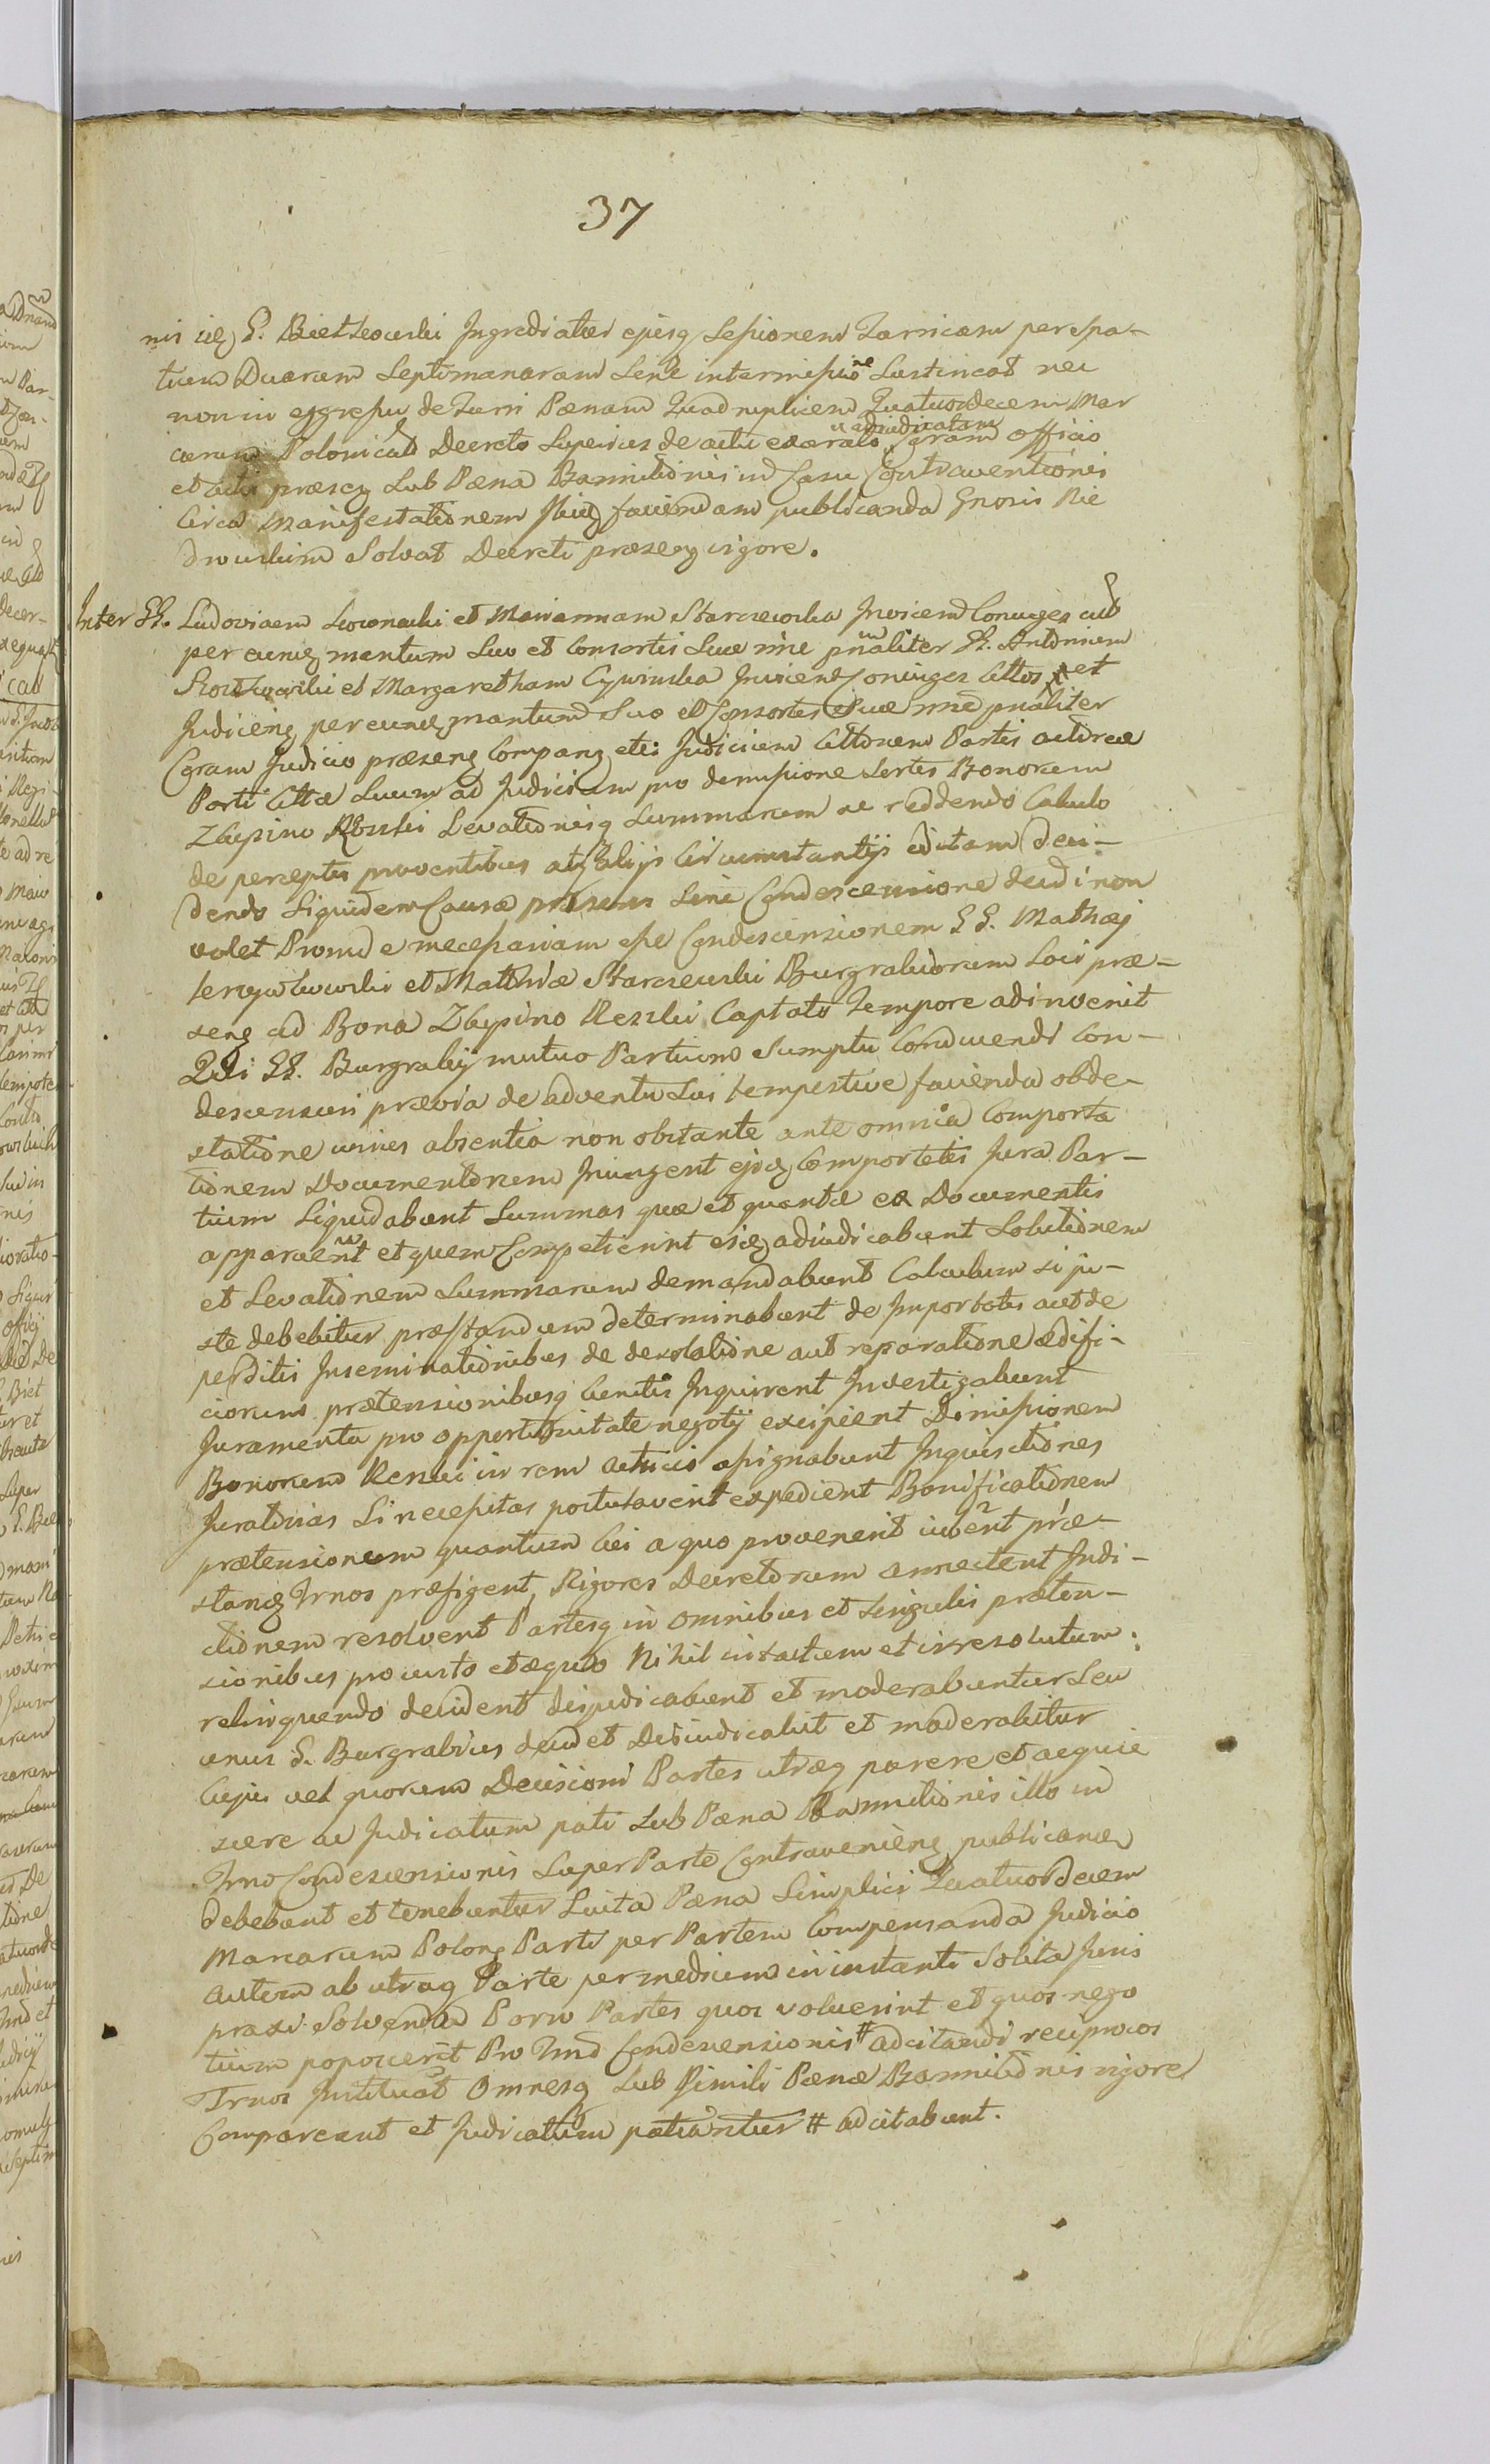 37
nis idq G. Bietkowski Ingrediatur ejusq Sessionem Turricam per spa-
tium Duarum Septimanarum sine intermissione Sustineat nec
non in eggressu de Turri Pænam Quadruplicem Quatuordecem Mar
carum Polonical Decreto Superius de actu exarato adiudicatam Coram officio
et actis præseq Sub Pæna Bannitionis in Casu Contraventionis
Circa Manifestationem faciendam publicanda Gnosis Nie
Solvat Decreti præseq vigore.
Inter GG. Ludovicum et Mariannam Starczewska Invicem Coniuges
per eunq mantum Suo et Consortis Suæ nne pnaliter GG. Antonium
et Margaretham Cywinska Invicem Coniuges Cittos et
Judicieng per eunq mantum Suo et Consortis Suæ nne pnaliter
Coram Judicio præseng Compang etc: Judicium Cittonem Partis actoreæ
Parti Cittæ Suum ad Judicium pro demissione Sortis Bonorum
Zbysino Reszki Levationisq Summarum ac reddendo Calculo
de perceptis proventibus atq alijs Circumstantijs editam deci-
dendo Siquidem Causa præsens Sine Condescensione decidi non
valet Proinde necessariam esse Condescensionem GG. Mathæj
et Mathiæ Starczewski Burgrabiorum Loci præ-
seng ad Bona Zbysino Reszki Captato Tempore adinvenit
Qui GG. Burgrabij mutuo Partium Sumptu Conducendi Con-
descensuri prævia de adventu Sui tempestive facienda obte-
statione unius absentia non obstante ante omnia Comporta
tionem Documentorum Iniungent ejsq Comportatis Jura Par-
tium Liquidabunt Summas quæ et quantæ ex Documentis
apparuerint et quem Competierint eisq adiudicabunt Solutionem
et Levationem Summarum demandabunt Calculum si ju-
ste debebitur præstandum determinabunt de Importatis aut de
perditis Inseminationibus de desolatione aut reparatione ædifi-
ciorum prætensionibusq Cunctis Inquirent Investigabunt
Juramenta pro opportunitate negotij excipient Dimissionem
Bonorum Reszki in rem actricis assignabunt Inquisitiones
Juratorias Si necessitas postulaverit expedient Bonificationem
prætensionum quantum Cui a quo provenerit iubent præ-
staniq Trnos præfigent, Rigores Decretorum annectent Indi-
ctionem resolvent Partesq in omnibus et Singulis præten-
sionibus pro iusto et æquo Nihil intactum et irresolutum
relinquendo decident dijudicabunt et moderabuntur Seu
unus G. Burgrabius decidet Deiudicabit et moderabitur
Cujus vel quorum Decisioni Partes utræq parere et acquie
scere ac Judicatum pati Sub Pæna Bannitionis illo in
Trno Condescensionis Super Parte Contravenieng publicanda
debebunt et tenebuntur Luita Pæna Simplici Quatuordecem
Marcarum Polong Parti per Partem Compensanda Judicio
autem ab utraq Parte per medium in instanti Solita Juris
praxi Solvenda Porro Partes quos voluerint et quos nego
tium poposcerit Pro Trno Condescensionis # adcitandi reciprocos
Trnos Instituat Omnesq Sub Simili Pæna Bannitionis vigore
Compareant et Judicatum patiantur # adcitabunt.